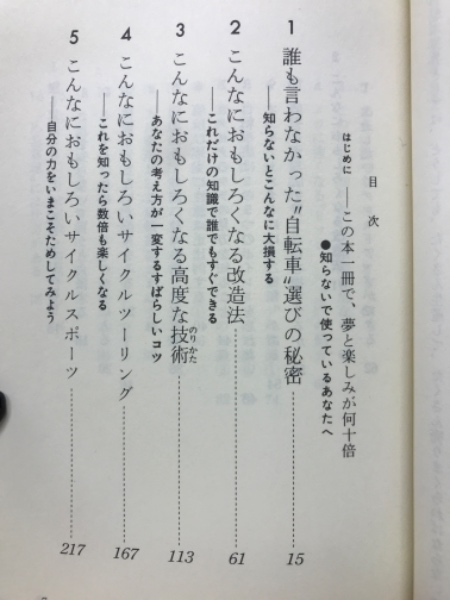 目次
はじめに――この本一冊で、夢と楽しみが何十倍
●知らないで使っているあなたへ
1 誰も言わなかった〝自転車〟選びの秘密……15
――知らないとこんなに大損する
2 こんなにおもしろくなる改造法……61
――これだけの知識で誰でもすぐできる
3 こんなにおもしろくなる高度な技術(のりかた)……113
――あなたの考え方が一変するすばらしいコツ
4 こんなにおもしろいサイクルツーリング……167
――これを知ったら数倍も楽しくなる
5 こんなにおもしろいサイクルスポーツ……217
――自分の力をいまこそためしてみよう